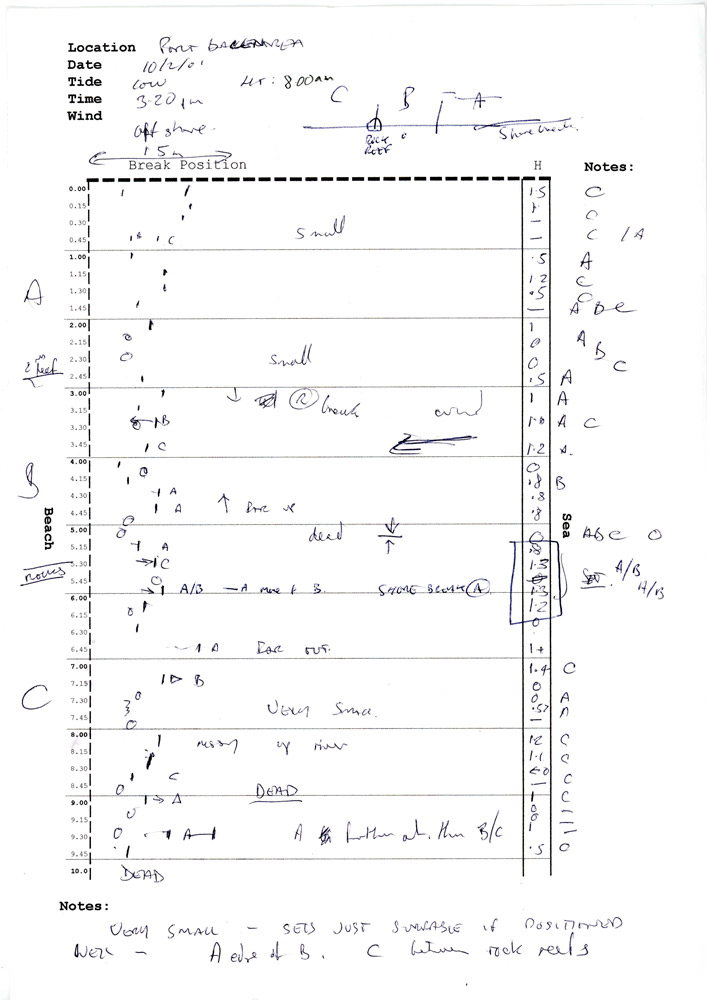 Location Port
Date 10/2/01
Tide Low HT: 8.00am
Time 3.20 pm
Wind off shore.
C B A
ROCK REEF
1.5m
Break Position H Notes:
0.00 1.5 C
0.15 1 C
0.30 —
0.45 C small — C / A
1.00 .5 A
1.15 1.2 C
1.30 .5 C
A
1.45 — A B C
2.00 1
2.15 0 A
2.30 small 0 B C
2m Reef
2.45 .5 A
3.00 1 A
3.15 break wind
3.30 B A C
3.45 C 1.2 A
4.00 0
4.15 .8 B
B
4.30 A .8
4.45 A FAR UP .8
Beach Sea
5.00 dead 0 ABC O
5.15 A .8
5.30 C 1.3 A/B
rocks
5.45 A/B — A more of B. SHORE BREAK A 1.3 A/B
6.00 1.2
6.15 0
6.30
6.45 A FAR OUT. 1+
7.00 1.4 C
7.15 B 0
7.30 0 A
C
7.45 VERY SMALL .5? A
8.00 messy up river 1.2 C
8.15 1.1 C
8.30 C <0 C
8.45 DEAD —
9.00 A 1 C
9.15 0
9.30 A A further out than B/C 1
9.45 .5 O
10.0 DEAD
Notes:
VERY SMALL — SETS JUST SURFABLE IF POSITIONED
WELL — A edge of B. C between rock reefs